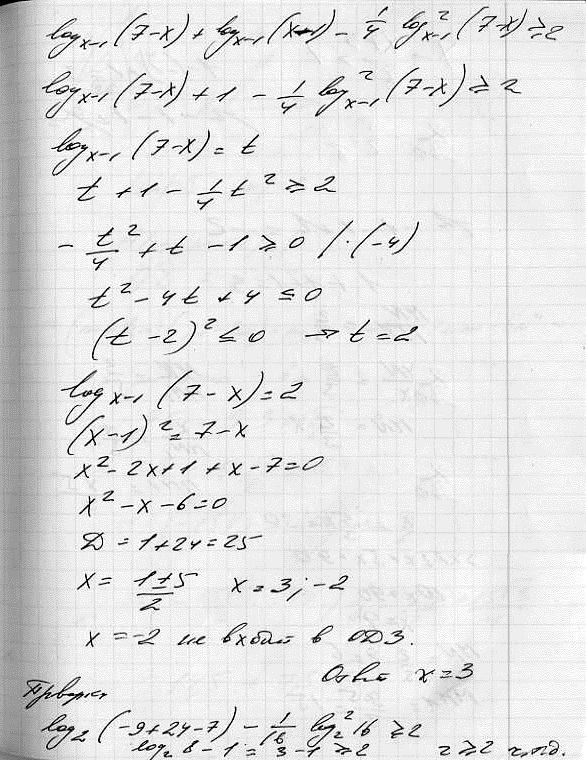 log_{x-1} (7-x) + log_{x-1} (x-1) - 1/4 log²_{x-1} (7-x) ≥ 2
log_{x-1} (7-x) + 1 - 1/4 log²_{x-1} (7-x) ≥ 2
log_{x-1} (7-x) = t
t + 1 - 1/4 t² ≥ 2
- t²/4 + t - 1 ≥ 0 /·(-4)
t² - 4t + 4 ≤ 0
(t - 2)² ≤ 0 → t = 2
log_{x-1} (7-x) = 2
(x-1)² = 7-x
x² - 2x + 1 + x - 7 = 0
x² - x - 6 = 0
D = 1 + 24 = 25
x = (1±5)/2 x = 3; -2
x = -2 не входит в ОДЗ.
Ответ x = 3
Проверка
log₂ (-9+24-7) - 1/16 log₂² 16 ≥ 2
log₂ 8 - 1 = 3 - 1 ≥ 2 2 ≥ 2 ч.т.д.